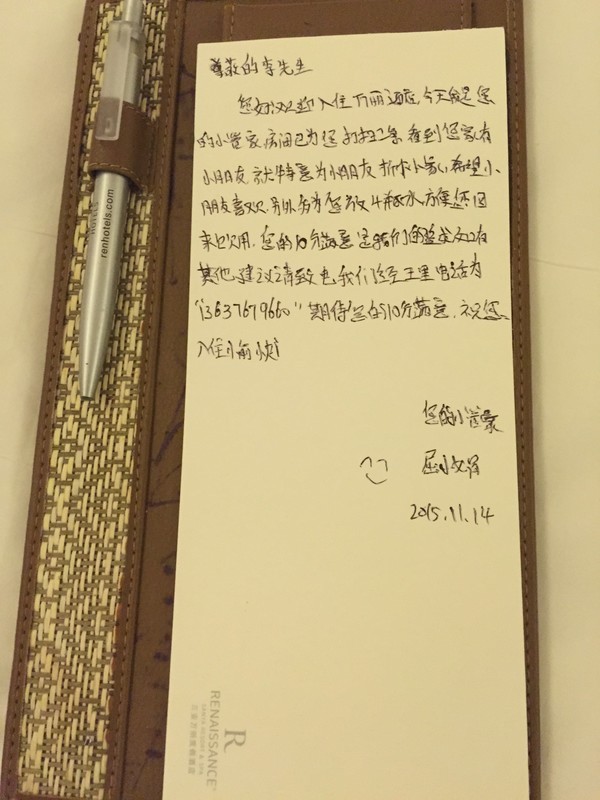 尊敬的李先生
您好!欢迎入住万丽酒店,今天我是您
的小管家,房间已为您打扫完毕,看到您家有
小朋友,就特意为小朋友折了小象,希望小
朋友喜欢,另外多为您放4瓶水,方便您回
来饮用。您的10分满意是我们的追求,如有
其他建议请致电我们经理王里电话为
"13637679660"期待您的10分满意,祝您
入住愉快!
您的小管家
屈小文
2015.11.14
renhotels.com
HOTELS
R
RENAISSANCE
SANYA RESORT & SPA
三亚万丽度假酒店